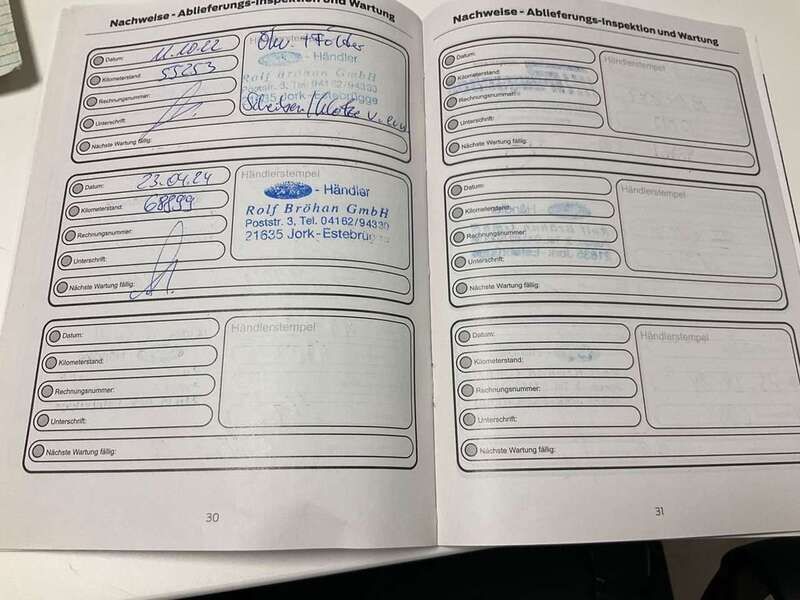 Nachweise - Ablieferungs-Inspektion und Wartung
Datum: 11.10.22
Kilometerstand: 55253
Rechnungsnummer:
Unterschrift:
Nächste Wartung fällig:
Händlerstempel
- Händler
Rolf Bröhan GmbH
Poststr. 3, Tel. 04162/94330
21635 Jork-Estebrügge
Datum: 23.04.24
Kilometerstand: 68899
Rechnungsnummer:
Unterschrift:
Nächste Wartung fällig:
Händlerstempel
- Händler
Rolf Bröhan GmbH
Poststr. 3, Tel. 04162/94330
21635 Jork-Estebrüg
Datum:
Kilometerstand:
Rechnungsnummer:
Unterschrift:
Nächste Wartung fällig:
Händlerstempel
30
Nachweise - Ablieferungs-Inspektion und Wartung
Datum:
Kilometerstand:
Rechnungsnummer:
Unterschrift:
Nächste Wartung fällig:
Händlerstempel
Datum:
Kilometerstand:
Rechnungsnummer:
Unterschrift:
Nächste Wartung fällig:
Händlerstempel
Datum:
Kilometerstand:
Rechnungsnummer:
Unterschrift:
Nächste Wartung fällig:
Händlerstempel
31